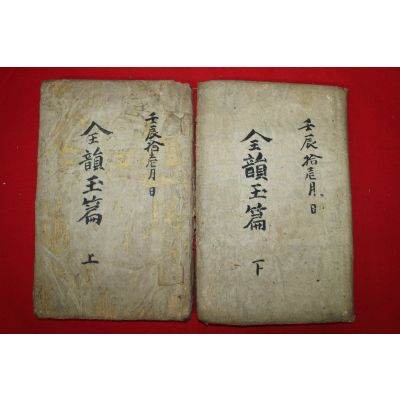 壬辰拾壱月 日
全韻玉篇
上
壬辰拾壱月 日
全韻玉篇
下